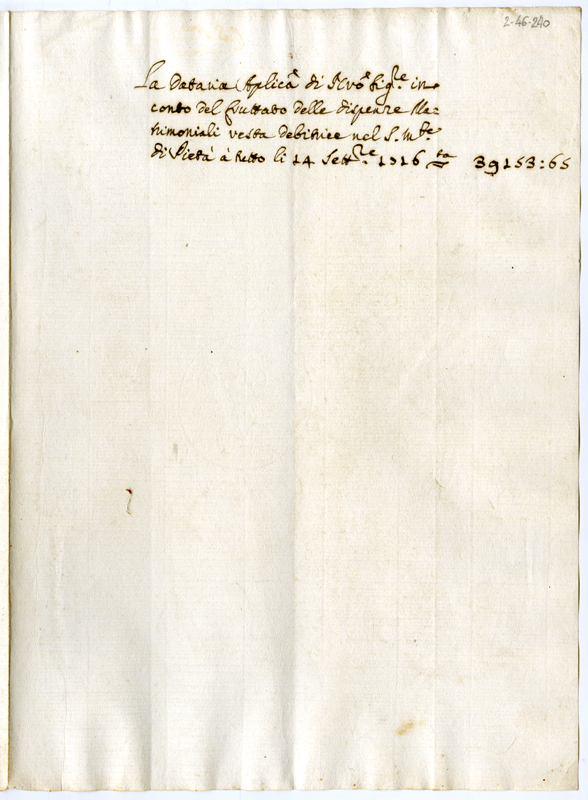 2-46-240
La Dataria Aplica di N.ro Sig.re in
conto del fruttato delle dispense Ma=
trimoniali resta debitrice nel S. M.te
di Pietà à tutto li 14 Sett.re 1716 39153:65